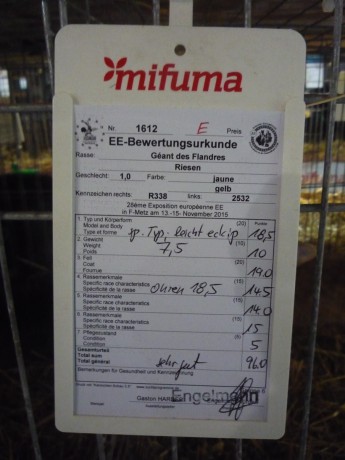 mifuma
Nr. 1612 E Preis
EE-Bewertungsurkunde
Rasse: Géant des Flandres
Riesen
Geschlecht: 1,0 Farbe: jaune
gelb
Kennzeichen rechts: R338 links: 2532
28ème Exposition européenne EE
in F-Metz am 13.-15. November 2015
1. Typ und Körperform (20) Punkte
Model and Body
Type et forme sp. Typ, leicht eckig 18,5
2. Gewicht (10)
Weight
Poids 7,5 10
3. Fell (20)
Coat
Fourrue 19.0
4. Rassemerkmale (15)
Specific race characteristics
Spécificité de la rasse Ohren 18,5 14.5
5. Rassemerkmale (15)
Specific race characteristics
Spécificité de la rasse 14.0
6. Rassemerkmale (15)
Specific race characteristics
Spécificité de la rasse 15
7. Pflegezustand (5)
Condition
Condition 5
Gesamturteil
Total sum
Total général sehr gut 96.0
Bemerkungen für Gesundheit und Kennzeichnung
Gaston Engelmann